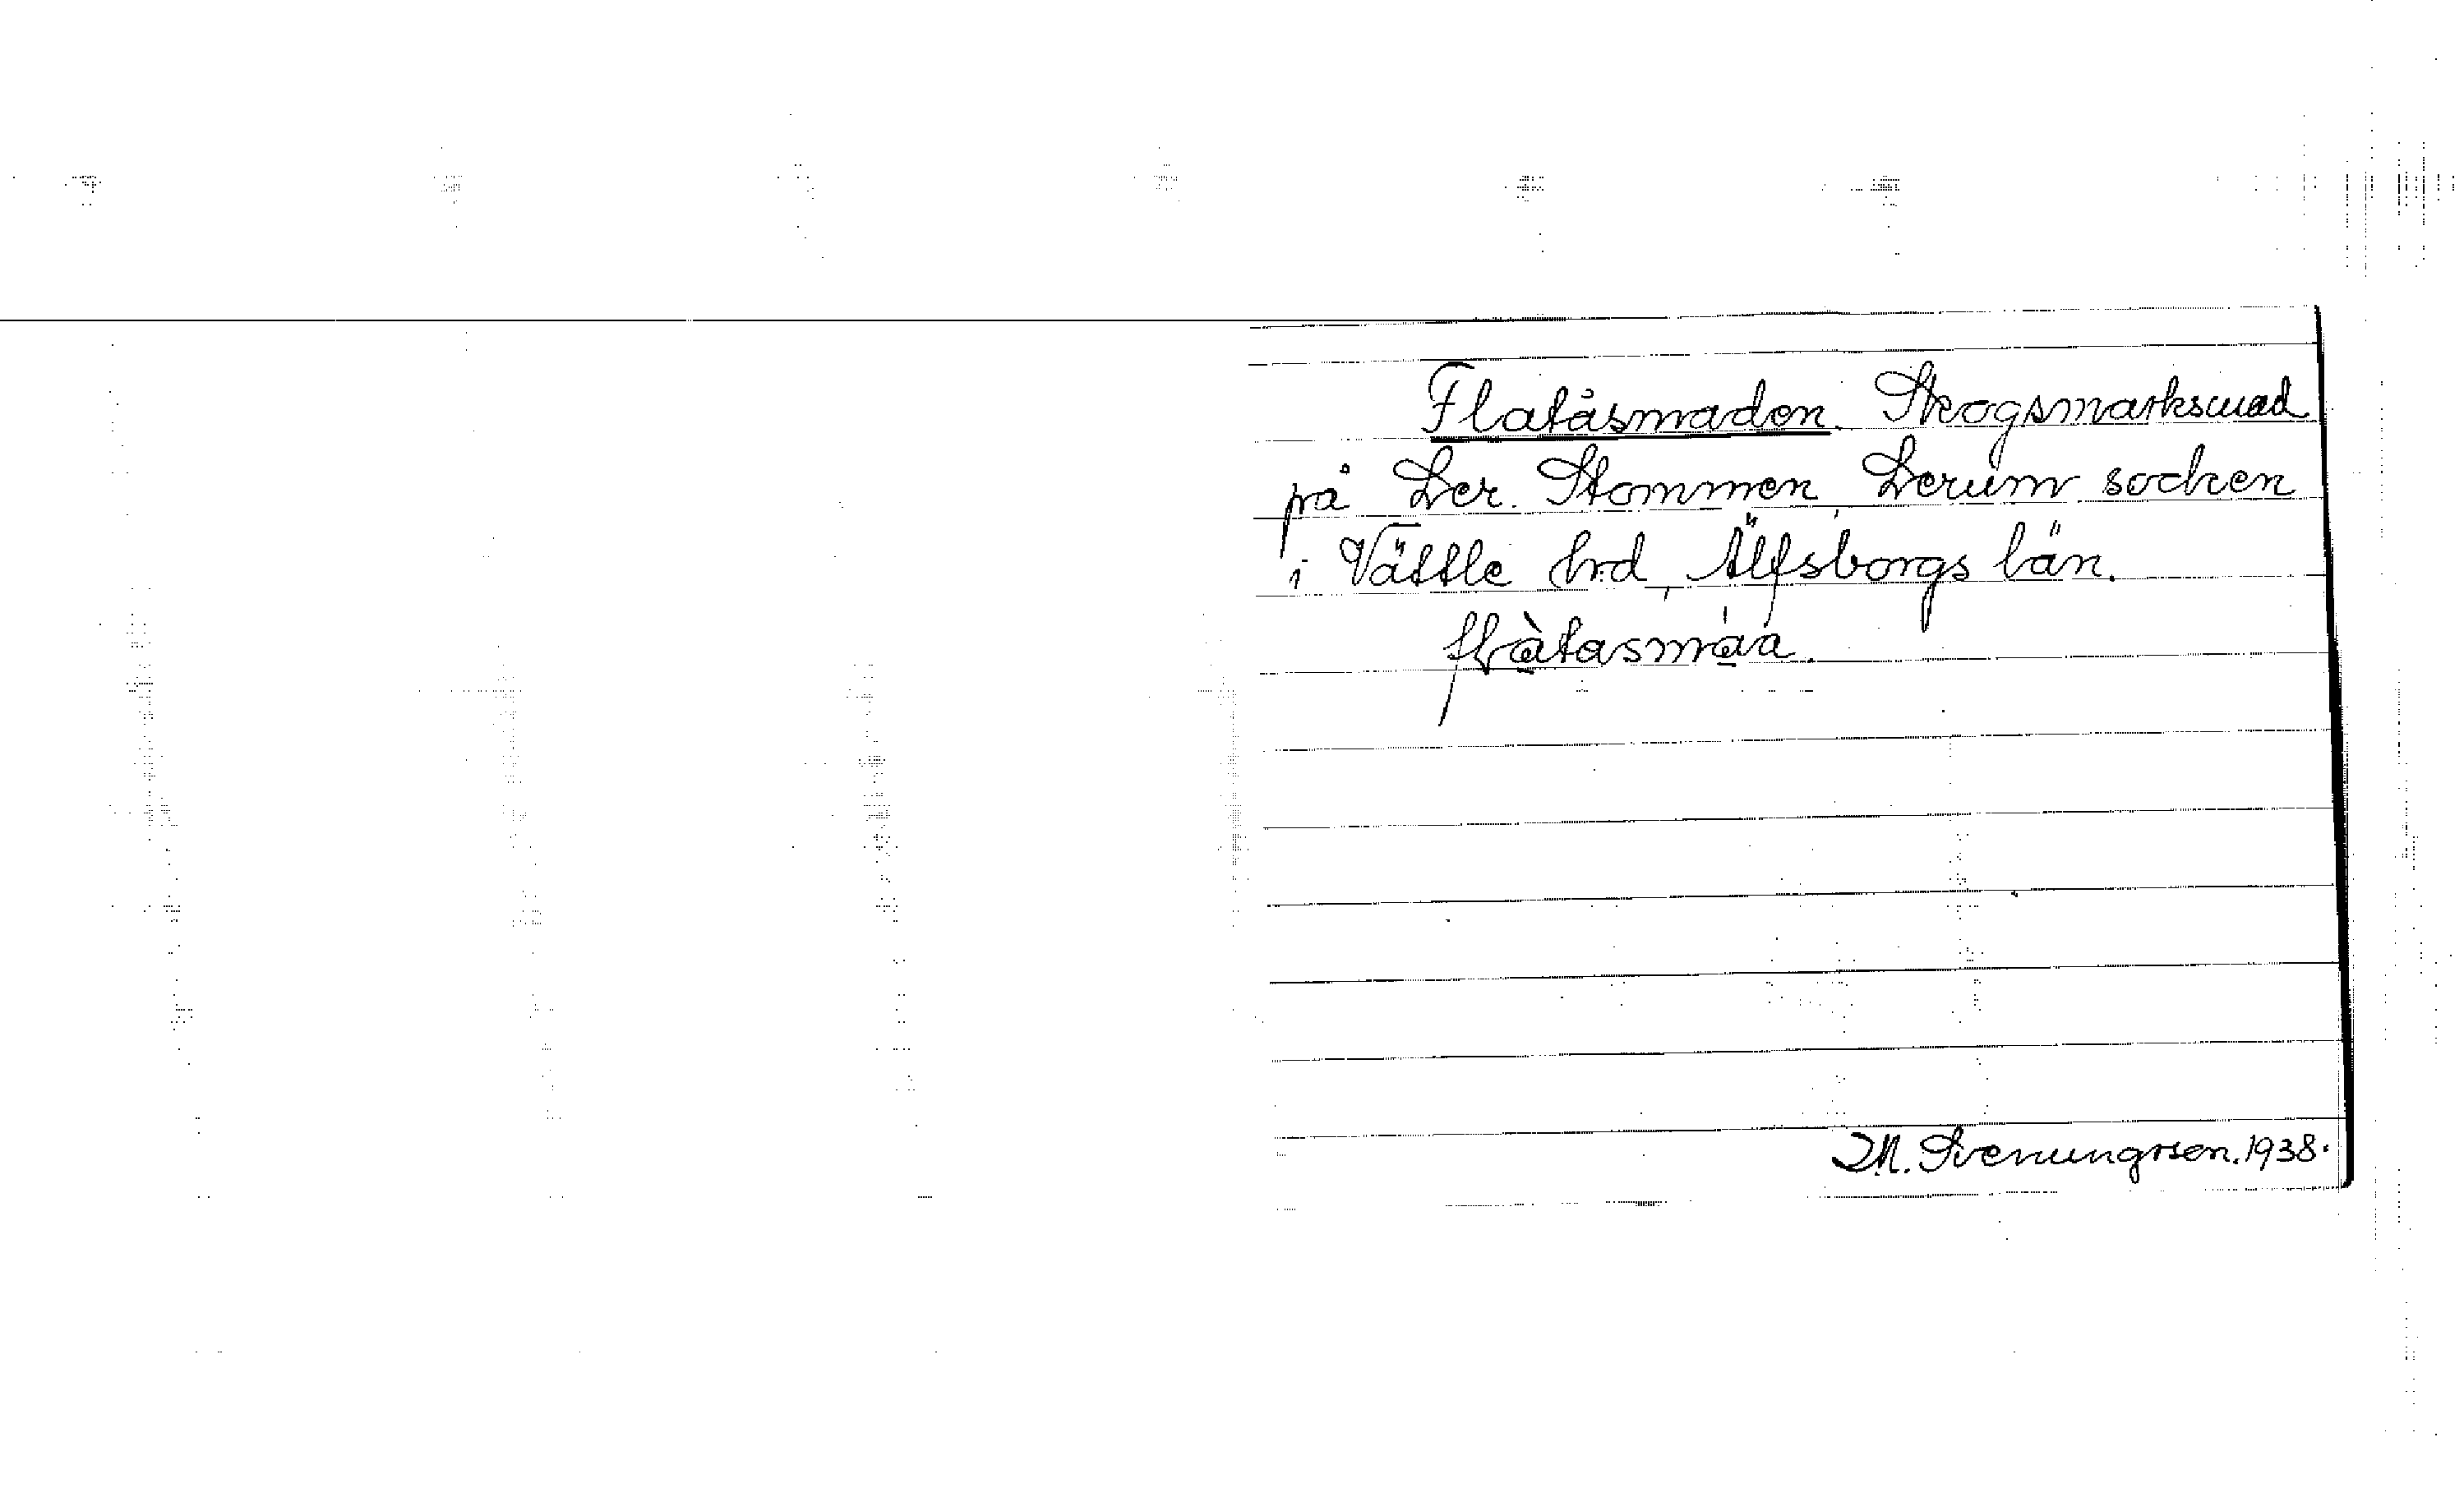 Flatåsmaden. Skogsmarksmad
på Ler. Stommen, Lerum socken
i Vättle hrd, Älfsborgs län.
flàtasmáa.
M. Svenungsson. 1938.